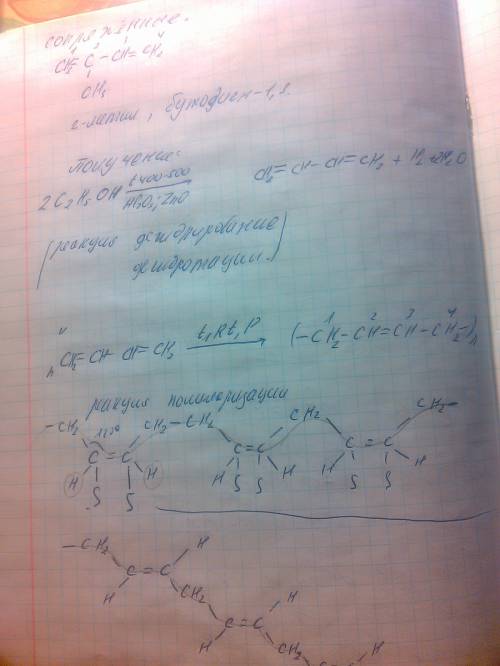 сопряжённые.
1 2 3 4
CH2=C-CH=CH2
CH3
2-метил, бутодиен-1,3.
получение:
2C2H5OH t 400-500 Al2O3; ZnO → CH2=CH-CH=CH2 + H2 + 2H2O
(реакция дегидрирование
дегидротации.)
n CH2=CH CH=CH2 t, Kt, P → (-CH2-CH=CH-CH2-)n
1 2 3 4
реакция полимеризации
-CH2 CH2-CH2 CH2 CH2-
C=C C=C C=C
H H H H H H
S S S S S S
-CH2 H
C=C
H CH2 H
C=C
H CH2 H